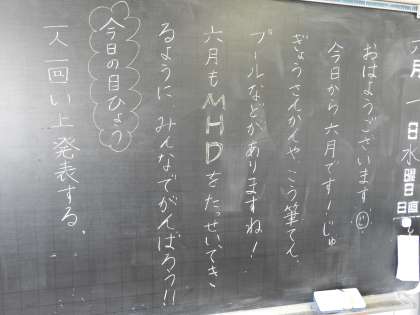 六月一日水曜日
日直
おはようございます
今日から六月です！じゅ
ぎょうさんかんや、こう筆てん、
プールなどがありますね！
六月もMHDをたっせいでき
るように、みんなでがんばろう!!
今日の目ひょう
一人一回い上発表する。